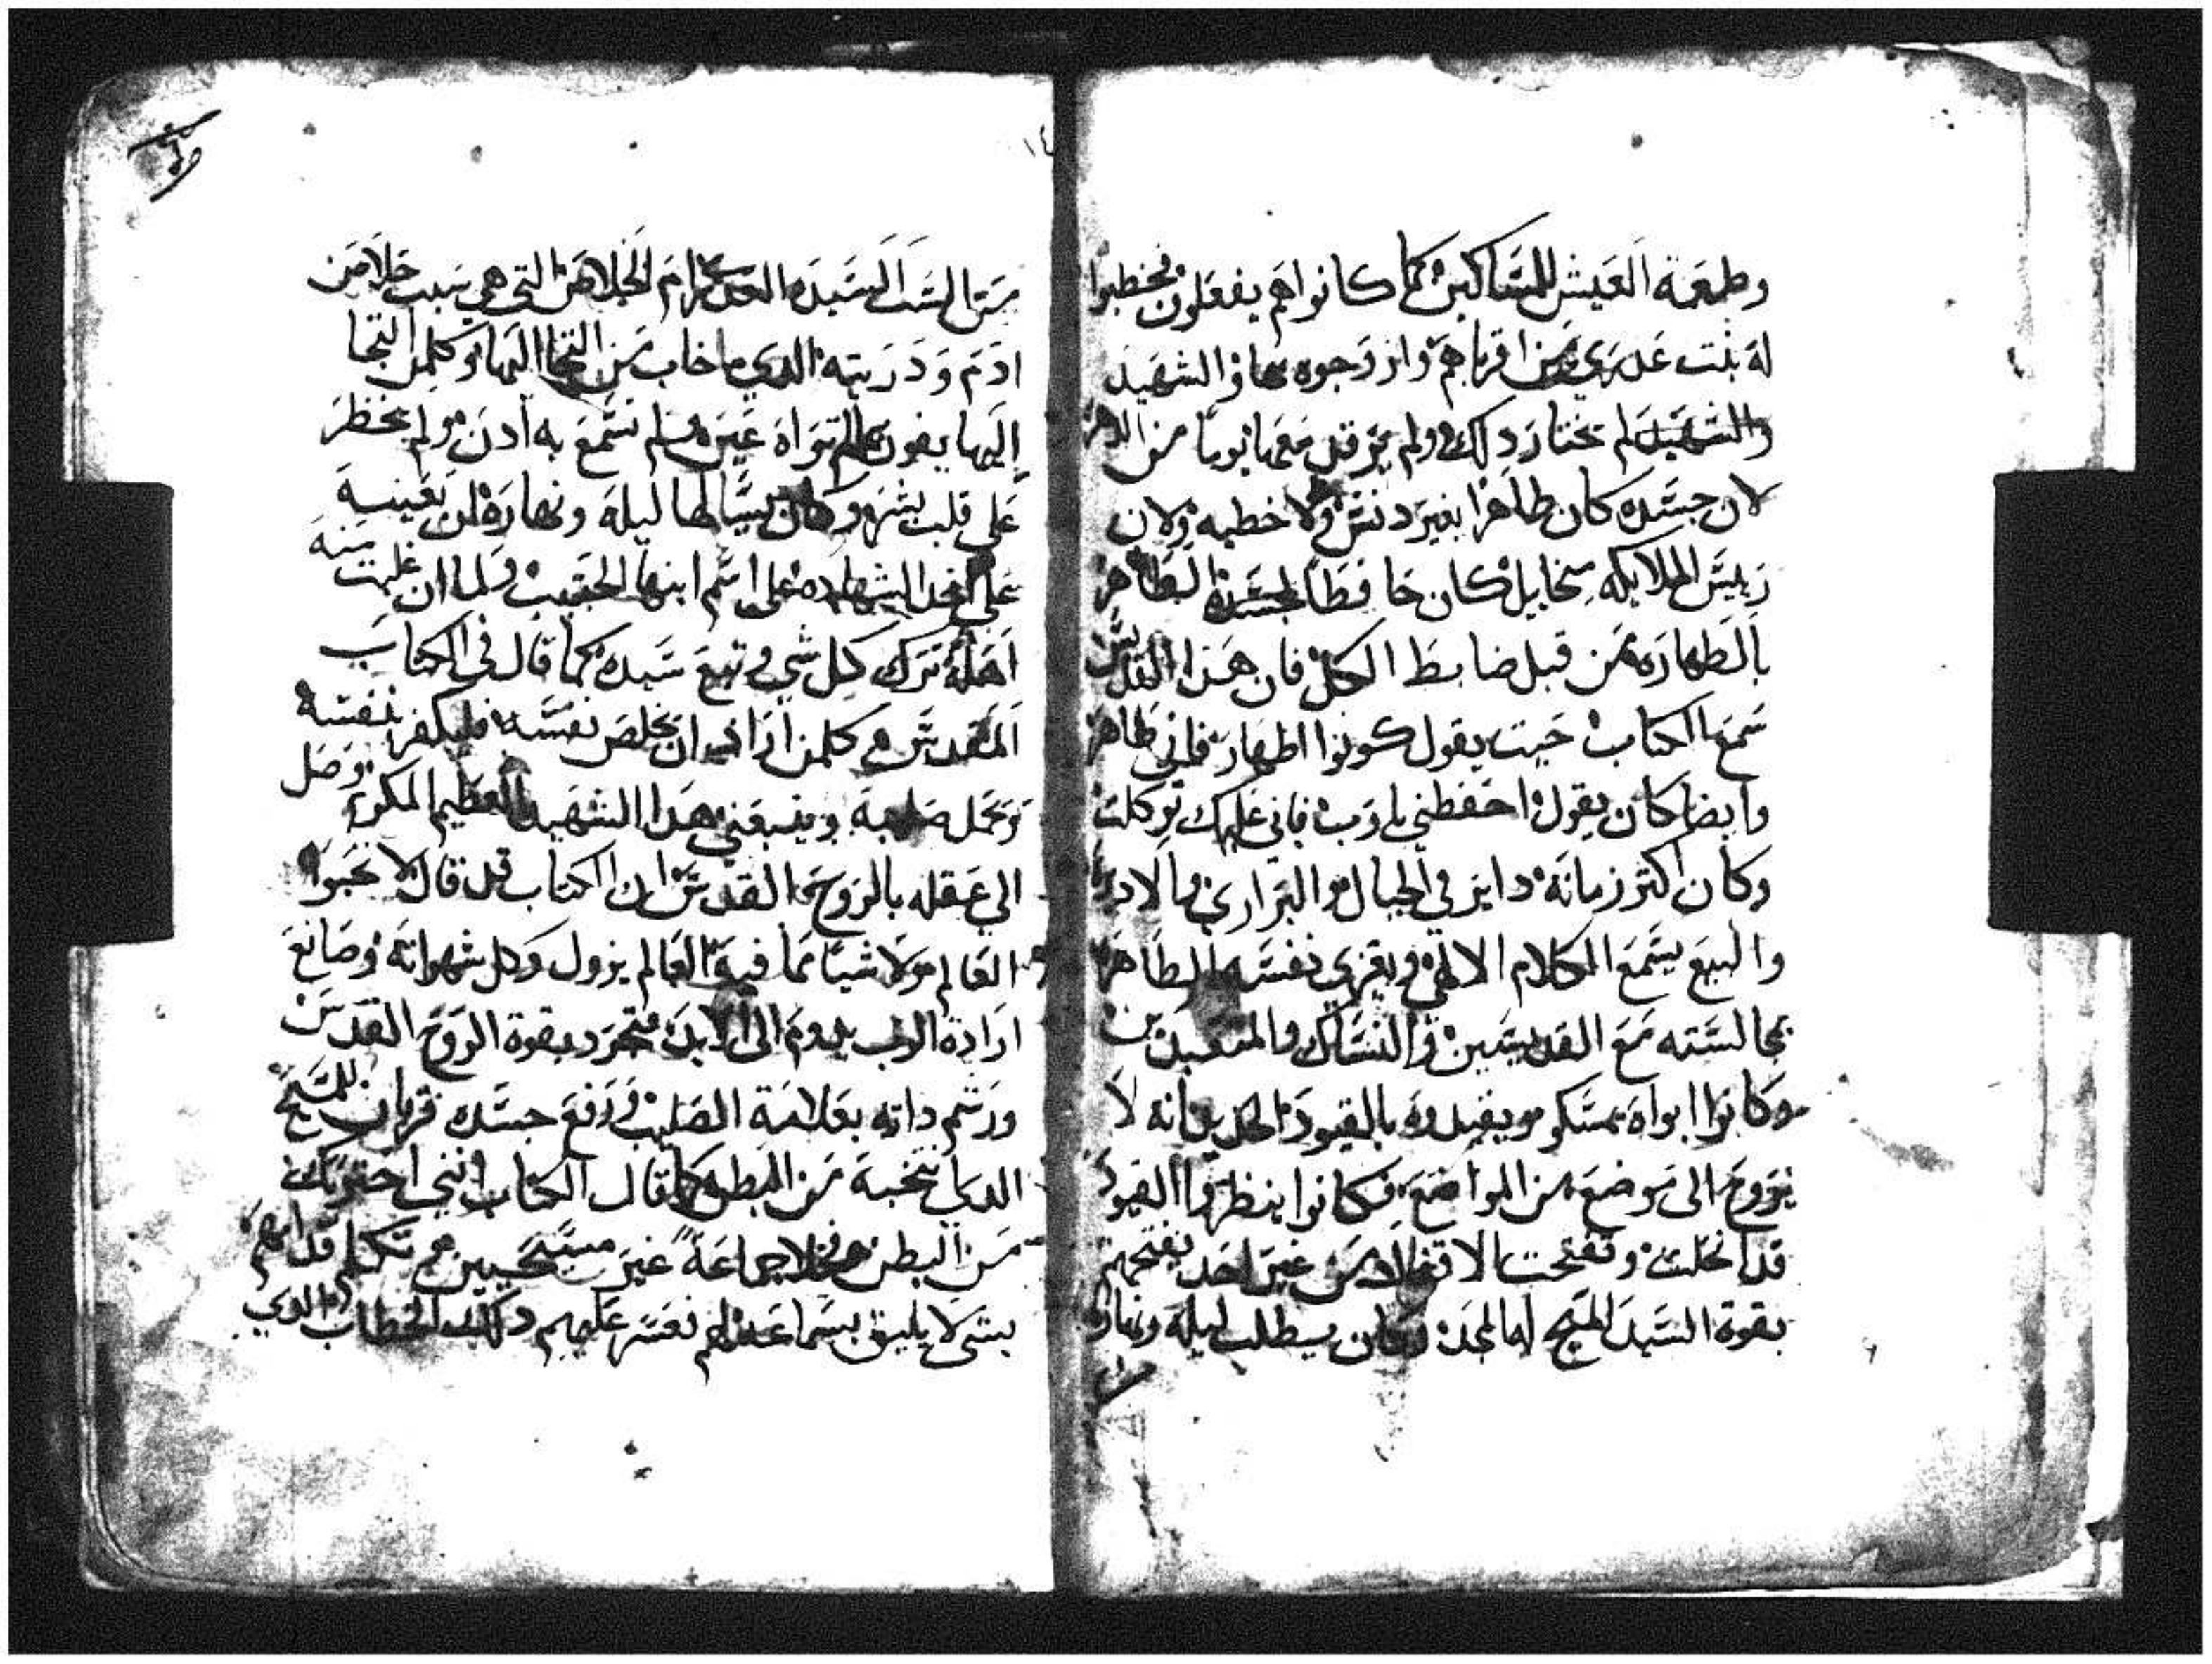 وطعمة العيش للمساكين كما كانوا هم يفعلون فخطبوا
له بنت عدري من اقرباهم وازوجوه بها والشهيد
والشهيد لم يختار دلك ولم يرقد معها يوما من الدهر
لان جسده كان طاهرا بغير دنس ولا خطيه ولان
رييس الملايكه ميخاييل كان حافظا لجسده الطاهر
بالطهاره من قبل ضابط الكل فان هدا القديس
سمع الكتاب حيت يقول كونوا اطهار فاني طاهر
وايضا كان يقول احفظني يا رب فاني عليك توكلت
وكان اكثر زمانه داير في الجبال والبراري والاديره
والبيع يسمع الكلام الالهي ويعزي نفسه الطاهره
بمجالسته مع القديسين والنساك والمتعبدين
وكانوا ابواه تمسكو ويقيدوه بالقيود الحديد لانه لا
يروح الى موضع من المواضع فكانوا ينظروا القيود
قد انحلت وتفتحت الاقفال من غير احد يفتحهم
بقوة السيد المسيح له المجد وكان يطلب ليله ونهاره
١٤
من الست السيده العدري مرتمريم ام الخلاص التي هي سبب خلاص
ادم ودريته الدي ما خاب من التجا اليها وكلمن التجا
اليها يفوز بما لم تراه عين ولم تسمع به ادن ولم يخطر
على قلب بشر وكان يسالها ليله ونهاره ان تعينه
على اخد الشهاده على اسم ابنها الحبيب فلما ان علمت منه
اهله ترك كل شي وتبع سيده كما قال في الكتاب
المقدس كلمن اراد ان يخلص نفسه فليكفر بنفسه
ويحمل صليبه ويتبعني هدا الشهيد العظيم المكرم وصل
الي عقله بالروح القدس ان الكتاب قد قال لا تحبوا
العالم ولا شيا مما فيه العالم يزول وكل شهواته وصانع
ارادة الرب يدوم الى الابد فتجرد بقوة الروح القدس
ورشم داته بعلامة الصليب ورفع جسده قربان للمسيح
الدي انتخبه من البطن كما قال الكتاب انني اخترتك
من البطن جماعة غير مستحيين تكلم قدامهم
بشي لا يليق بسماعه لم نفسر عليهم دلك الخطاب الدي